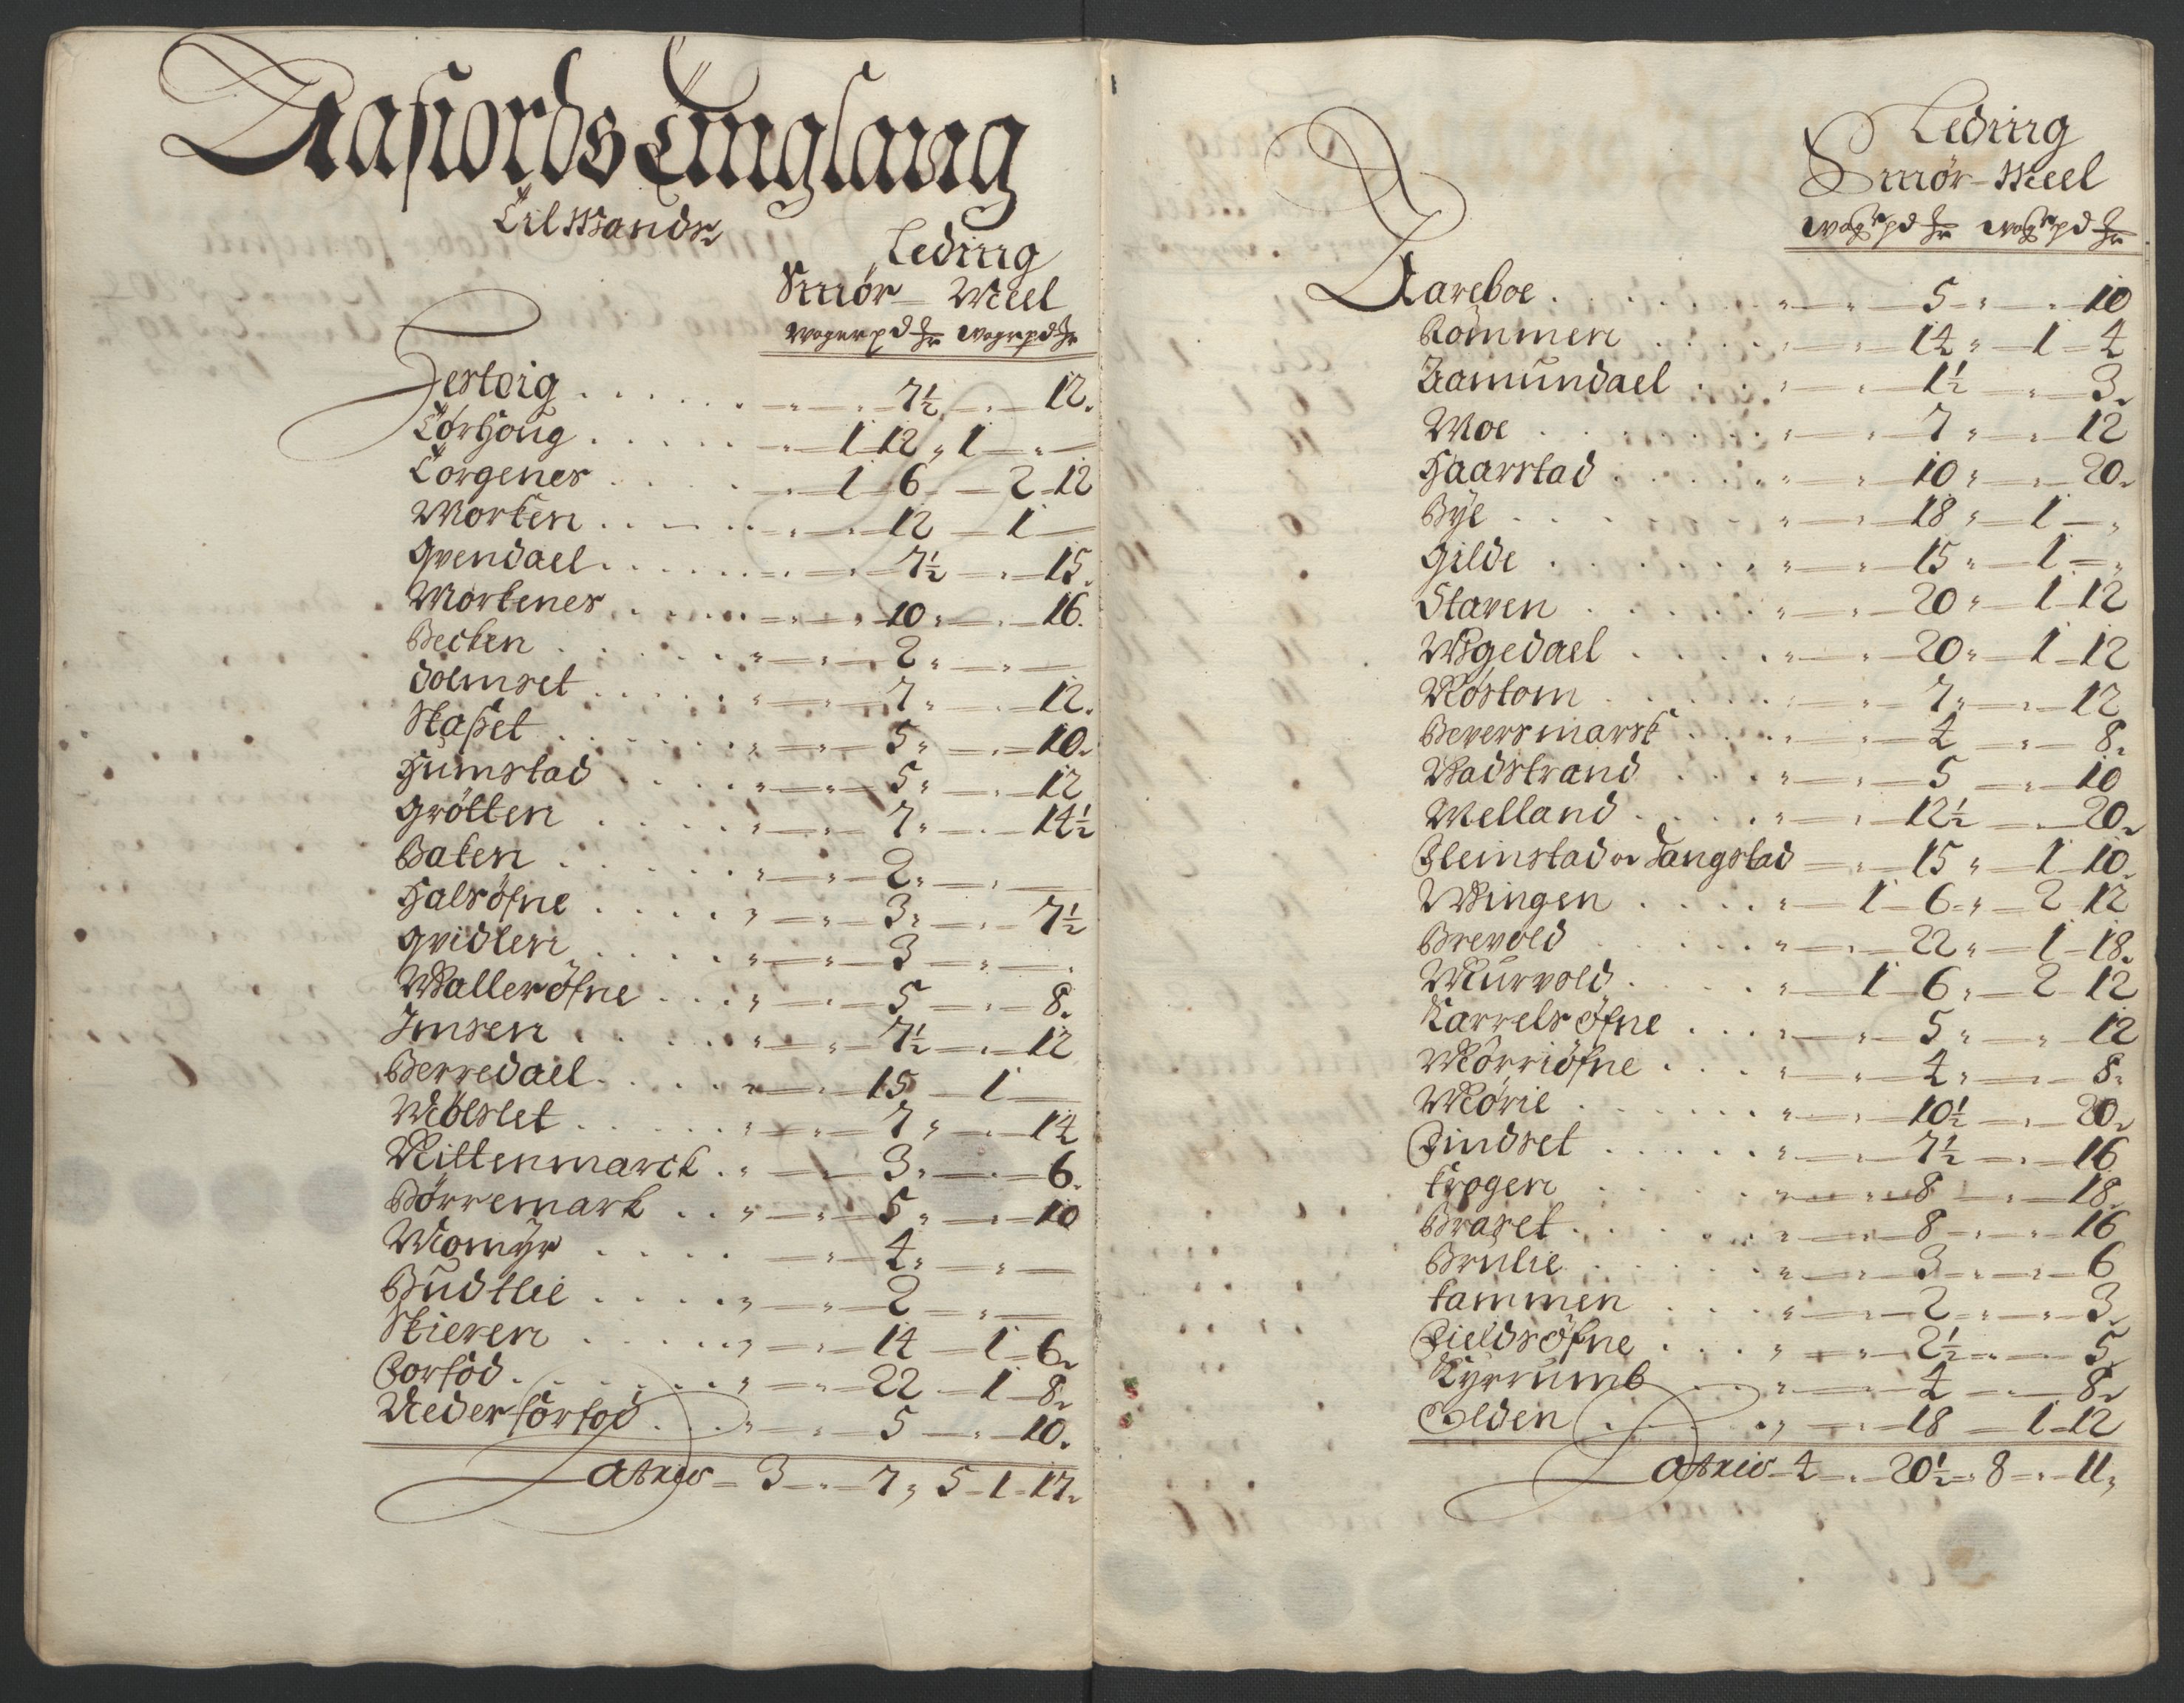 Aafiords Tinglaug
Til Mands
Leding
Smör Meel
Woger pd  Wogr pd
Festvig . . . . . . 7½ 12.
Tørhöug . . . . 1 12 „ 1 „ —
Torgenes . . . . 1 6 2 12
Morken . . . . 12 1 —
Qvendael . . . . 7½ 15.
Mortenes . . . . 10 „ 16.
Becken . . . . 2 „ „ —
Dolmset . . . . 7 „ 12.
Staßet . . . . 5 „ 10.
Humstad . . . . 5 „ 12
Grötten . . . . 7 „ 14½
Baken . . . . 2 „ —
Halsöfne . . . . 3 „ 7½
Qvidlen . . . . 3 „ —
Walleröfne . . . . 5 8.
Imsen . . . . 7½ 12
Berredael . . . . 15 1 —
Mölslet . . . . 7 „ 14
Rittenmarck . . 3 „ 6.
Börremark . . 5 „ 10
Momÿr . . . . 4 „ „ —
Budtlie . . . . 2 „ —
Skieren . . . . 14 1 6.
Forfod . . . . 22 1 8.
Neder forfod . . . . 5 10.
Lateris 3 „ 7 „ 5 1 17.
Leding
Smör Meel
wogr pd  wogr pd
Aareboe . . . . 5 „ 10
Kommen . . . . 14 „ 1 4
Aamundael . . . 1½ „ 3.
Moe . . . . 7 „ 12
Haarstad . . . . 10 „ 20.
Bÿe . . . . 18 „ 1 — „
Gilde . . . . 15 „ 1 — „
Staven . . . . 20 „ 1 12
Mÿgedael . . . . 20 „ 1 12
Rostom . . . . 7 „ 12
Beversmarsk . . . 4 „ 8.
Wadstrand . . . 5 „ 10
Melland . . . . 12½ 20.
Fleinstad oc Langstad 15 „ 1 10.
Wingen . . . . 1 6 „ 2 12
Brevold . . . . 22 „ 1 18.
Murvold . . . . 1 6 „ 2 12
Karrelsöfne . . . 5 „ 12
Mörriöfne . . . 4 „ 8.
Mörie . . . . 10½ 20.
Findset . . . . 7½ 16
Krogen . . . . 8 18.
Braset . . . . 8 „ 16
Brulie . . . . 3 „ 6
Kammen . . . . 2 „ 3.
Fieldsöfne . . . 2½ 5
Kyrrumb . . 4 8.
Olden . . . . 18 1 12
Lateris 4 „ 20½ „ 8 „ 11 „